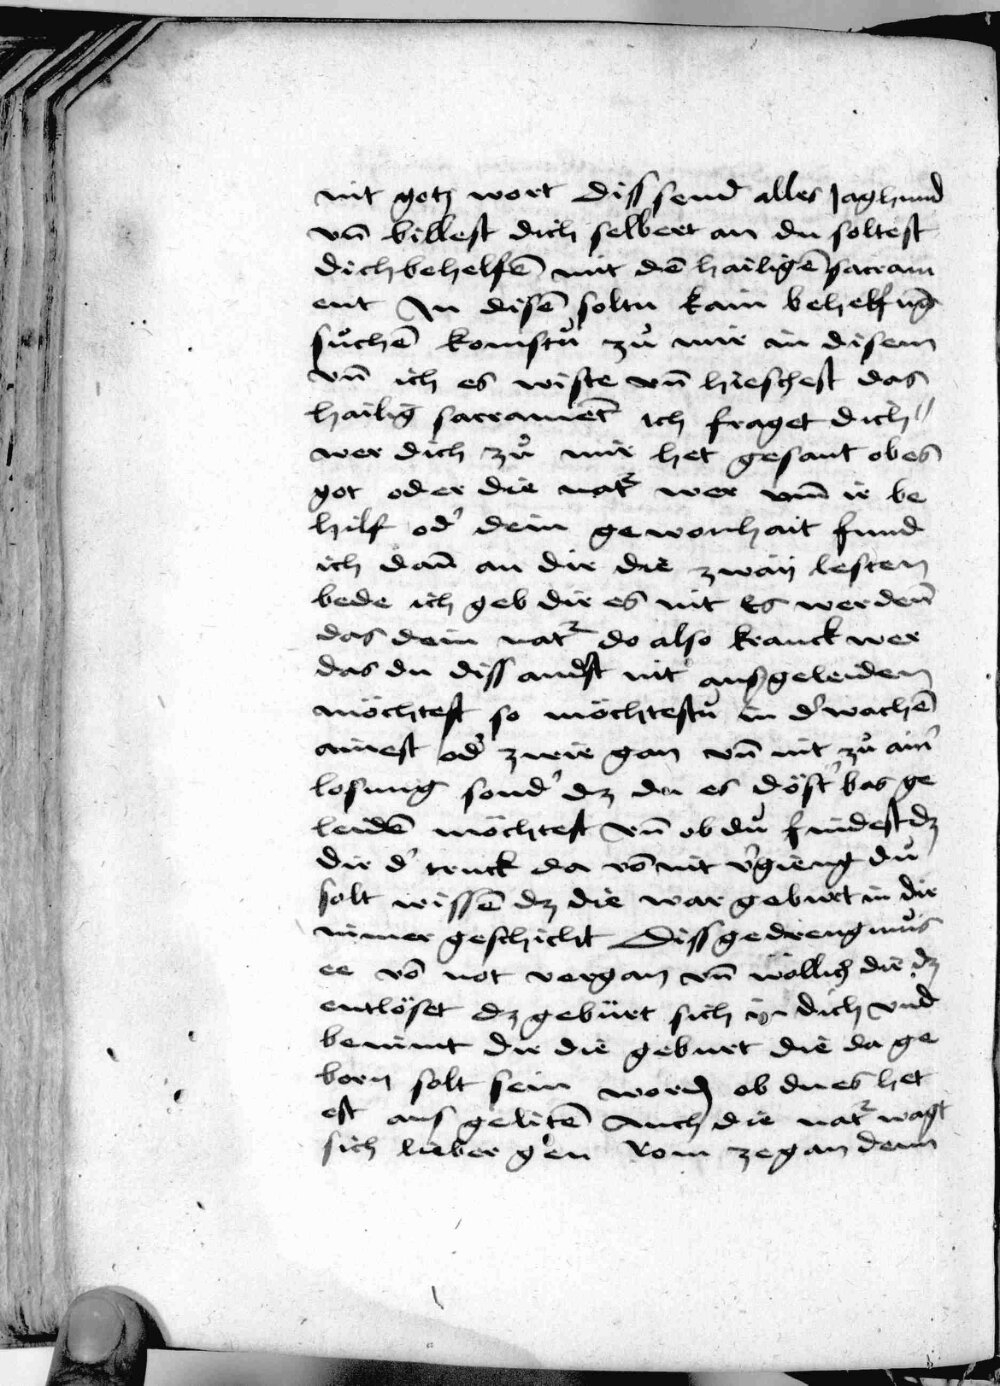 nit gotz wort Diss send alles Jaghund
vn̄ billest dich selbert an du soltest
dich behelfē mit dē hailigē sacram
ent In disē soltu kain behelfūg
sůchē komstů zů mir in disem
vn̄ ich es wiste vn̄ hieschest das
hailig sacramēt ich fraget dich //
wer dich zů mir het gesant obes
got oder die natᷣ wer vm̄ ir be
hilf od' dein gewonhait fund
ich dan̄ an dir die zwaÿ lesten
bede ich geb dir es nit Es werdeñ
das dein natᷣ do also kranck wer
das du diss andst nit aus geleiden
möchtest so möchtestů in d' wochē
ainest od' zwir gan vn̄ nit zů ain'
losung sond' dz du es döst' bas ge
leidē möchtest vn̄ ob dů findest dz
dir d' truck da vō nit v'gieng dů
solt wissē dz die war geburt in dir
nimer geschicht Diss gedreng můs
ee vō not vergan vn̄ wöllich dir dz
entlöset dz gebürt sich in dich vnd
benimt dir die geburt die da ge
born solt sein word̄ ob du es het
est aus gelitē Auch die natᷣ wagt
sich lieber g'en Rom ze gan denn